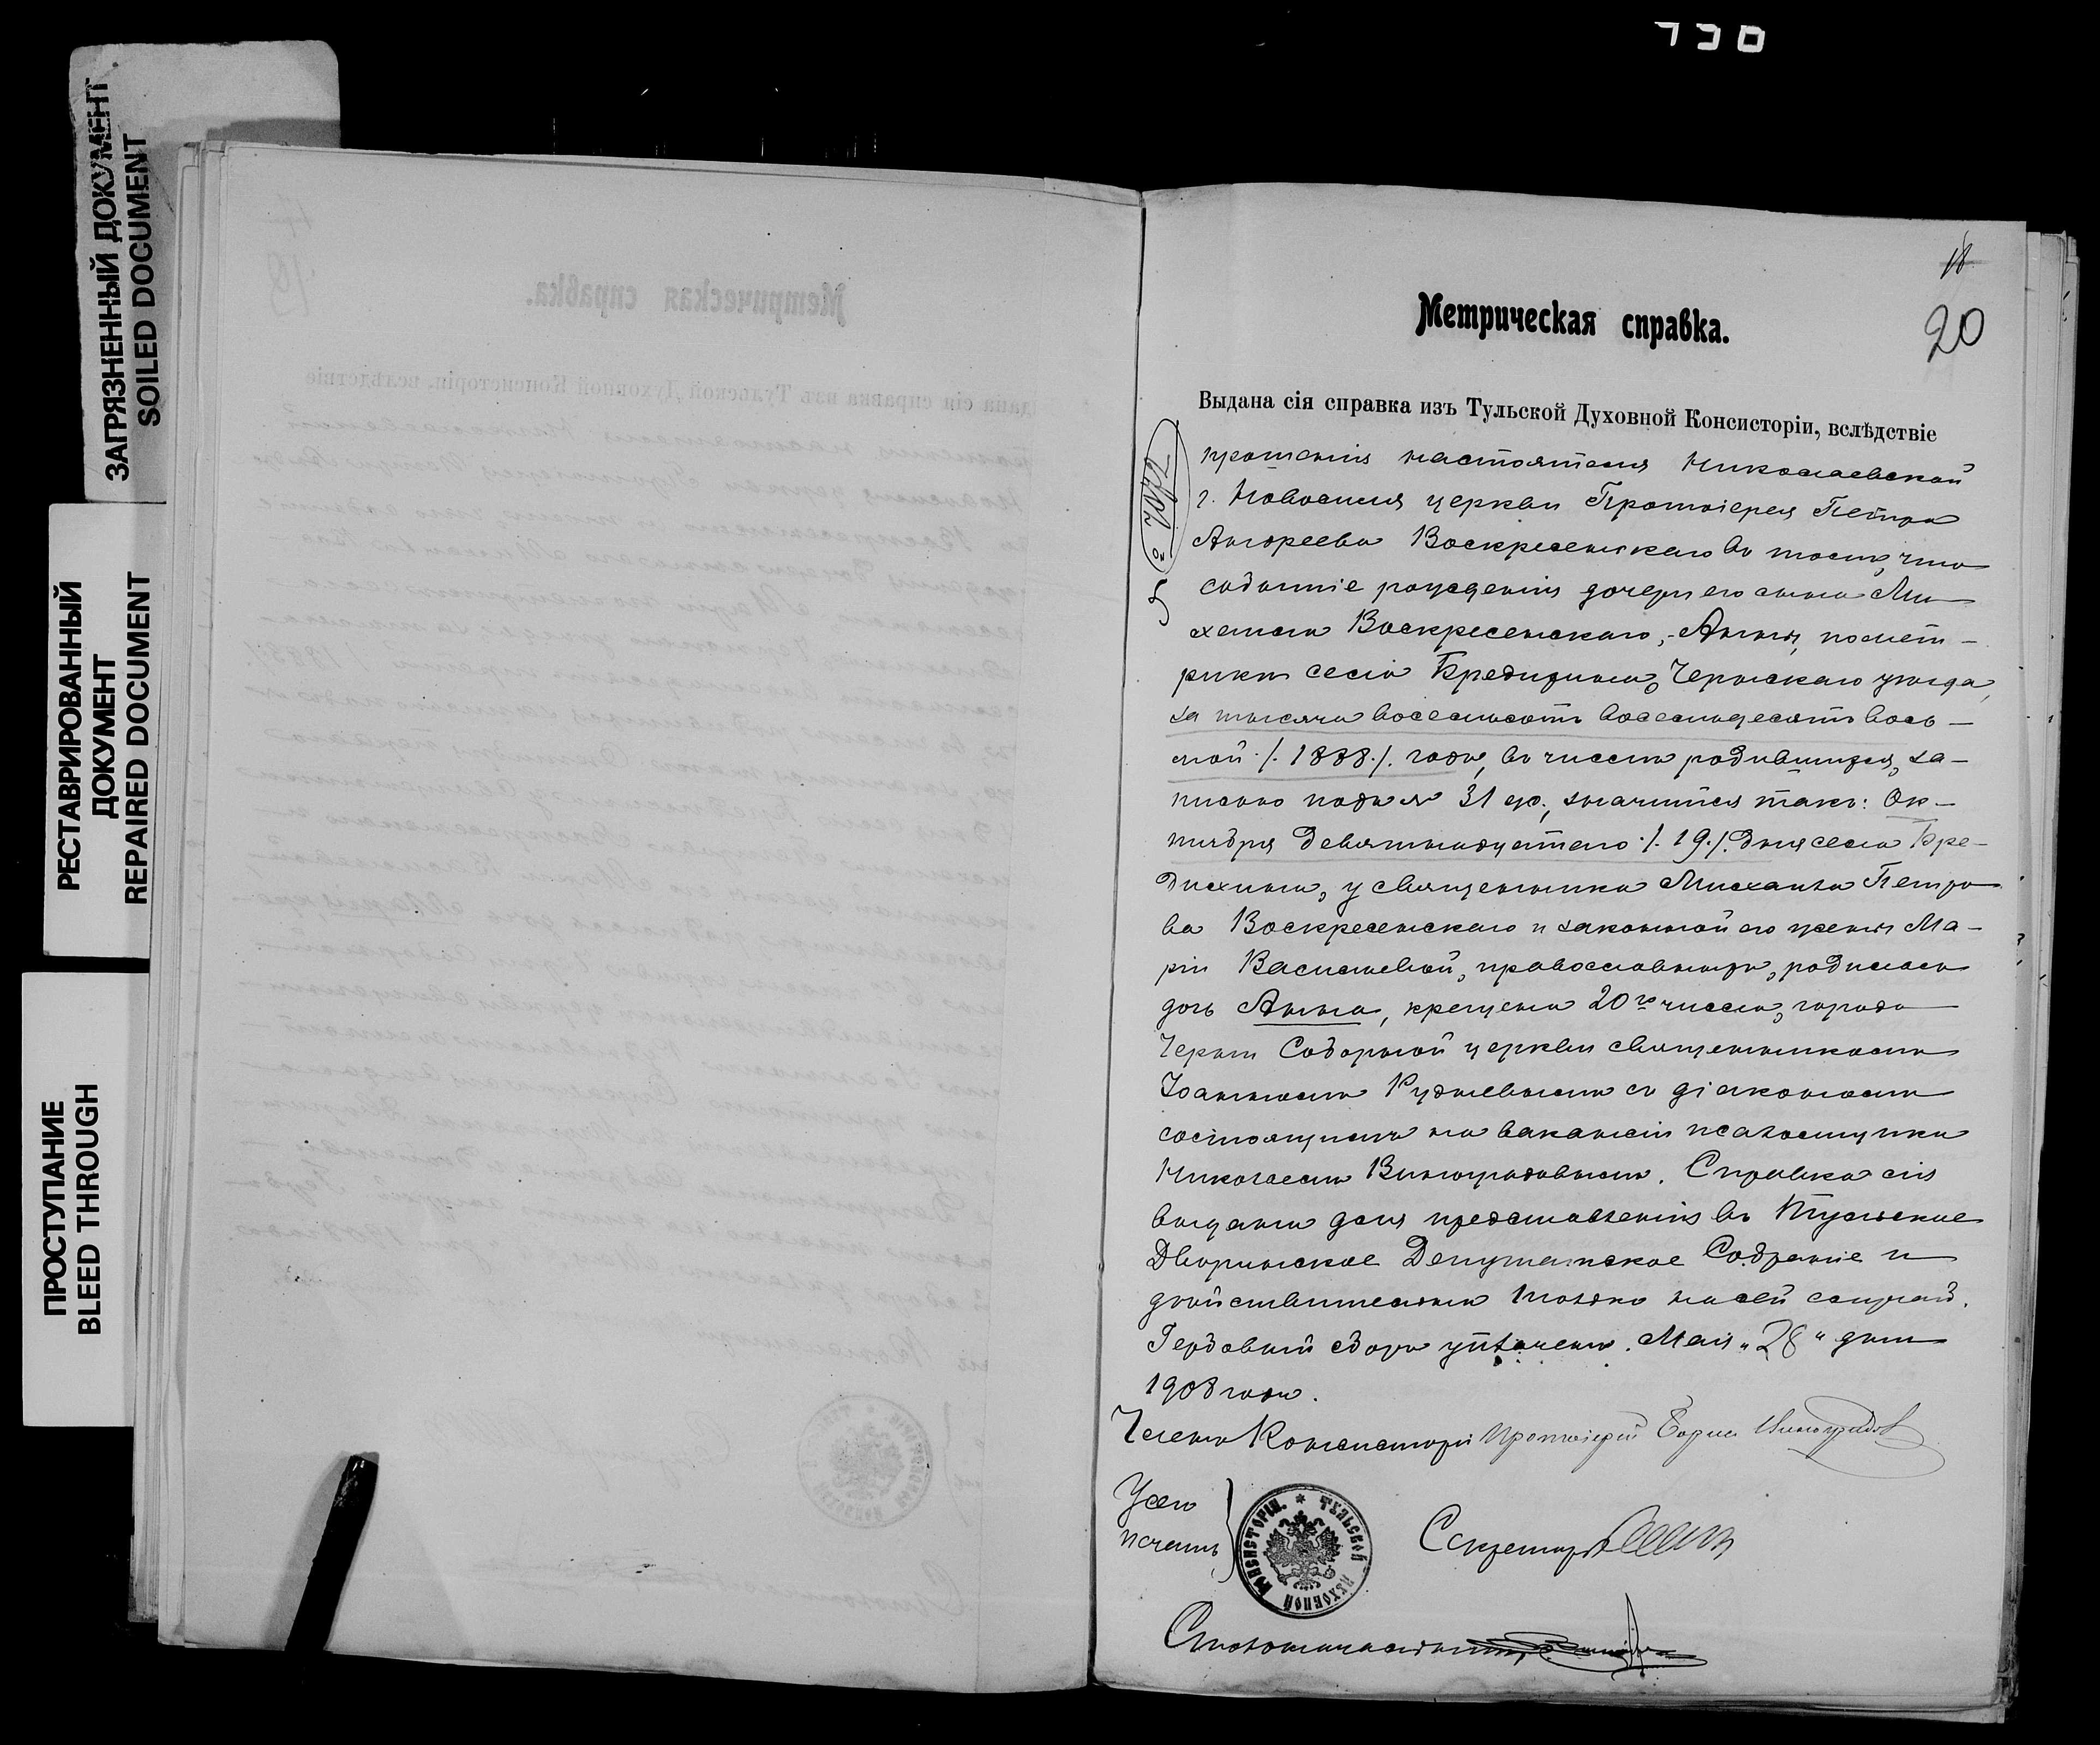 ЗАГРЯЗНЕННЫЙ ДОКУМЕНТ
SOILED DOCUMENT
РЕСТАВРИРОВАННЫЙ
ДОКУМЕНТ
REPAIRED DOCUMENT
ПРОСТУПАНИЕ
BLEED THROUGH
18
20
Метрическая справка.
Выдана сія справка изъ Тульской Духовной Консисторіи, вслѣдствіе
прошенія настоятеля Николаевской
г. Новосиля церкви Протоіерея Петра
Андреева Воскресенскаго въ томъ, что
событіе рожденія дочери его сына Ми-
хаила Воскресенскаго, - Анны, по мет-
рикѣ села Бредихина, Чернскаго уѣзда,
за тысяча восемьсотъ восемьдесятъ вось-
мой /. 1888 ./. годъ, въ числѣ родившихся, за-
писано подъ № 31 ср., значится такъ: Ок-
тября девятнадцатаго ./. 19 ./. дня села Бре-
дихина, у священника Михаила Петро-
ва Воскресенскаго и законной его жены Ма-
ріи Васильевой, православныхъ, родилась
дочь Анна, крещена 20го числа, города
Черни Соборной церкви священникомъ
Іоанномъ Рудневымъ съ діакономъ
состоящимъ на вакансіи псаломщика
Николаемъ Виноградовымъ. Справка сія
выдана для представленія въ Тульское
Дворянское Депутатское Собраніе и
дѣйствительна только на сей случай.
Гербовый сборъ уплаченъ. Мая „28“ дня
1908 года.
Членъ Консисторіи Протоіерей Виноградовъ
У сего
печать
ТУЛЬСКОЙ ДУХОВНОЙ КОНСИСТОРІИ. *
Секретарь
Столоначальникъ